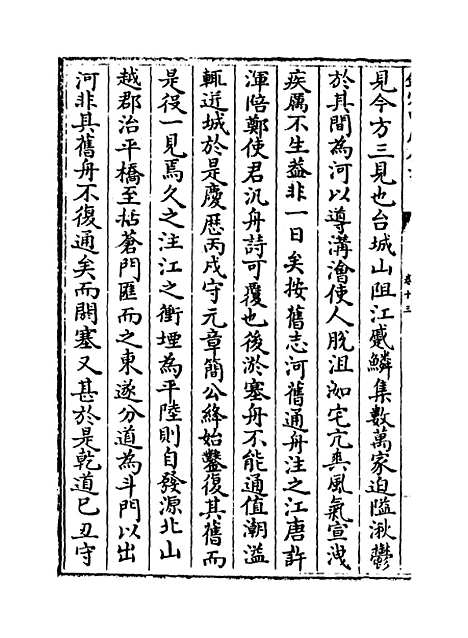 見今方三見也台城山阻江甗鱗集數萬家迫隘湫鬱
於其間為河以導溝澮使人脫沮洳宅亢爽風氣宣洩
疾厲不生葢非一日矣按舊志河舊通舟注之江唐許
渾陪鄭使君汎舟詩可覆也後淤塞舟不能通值潮溢
輒迸城於是慶厯丙戌守元章簡公絳始鑿復其舊而
是役一見焉久之注江之衝堙為平陸則自發源北山
越郡治平橋至拈蒼門匯而之東遂分道為斗門以出
河非其舊舟不復通矣而闗塞又甚於是乾道已丑守
卷十三